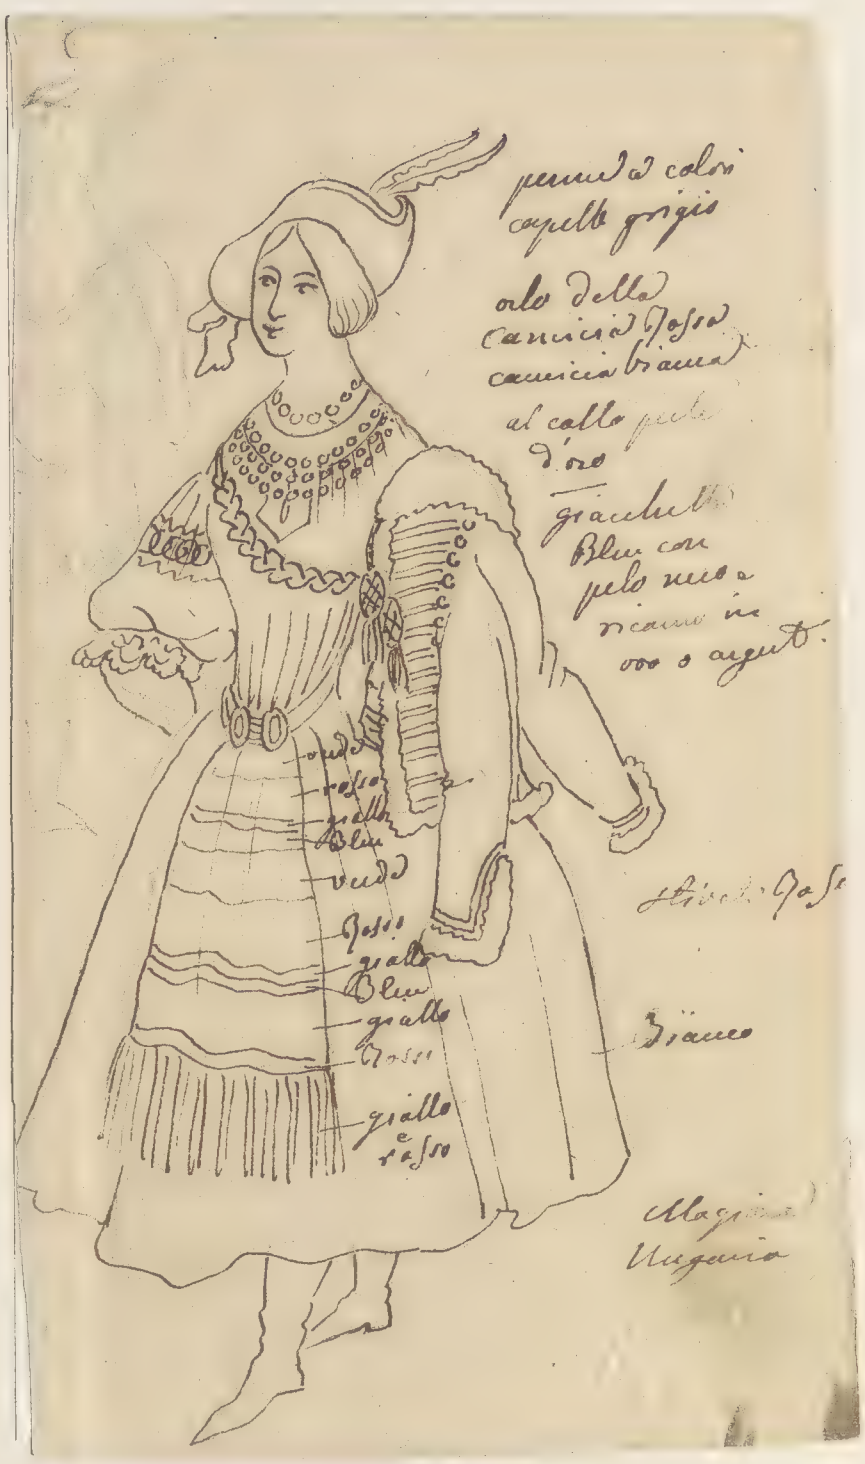 penne a colori
capello grigio
orlo della
camicia Rossa
camicia bianca
al collo perle
d'oro
giacchetto
Bleu con
pelo nero e
ricamo in
oro o argento.
verde
rosso
giallo
Bleu
verde
Rosso
giallo
Bleu
giallo
Rosso
giallo
e
rosso
stivali Rossi
Bianco
Ungaria